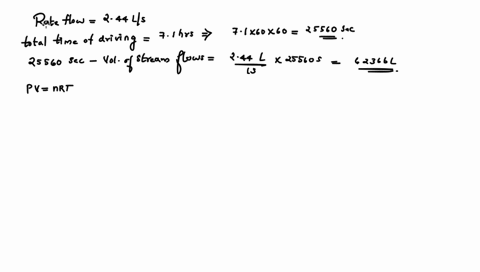 Rate flow = 2.44 L/s
total time of driving = 7.1 hrs ⇒ 7.1x60x60 = 25560 sec.
25560 sec - Vol. of stream flows = 2.44 L/1s x 25560s = 62366L.
PV = nRT